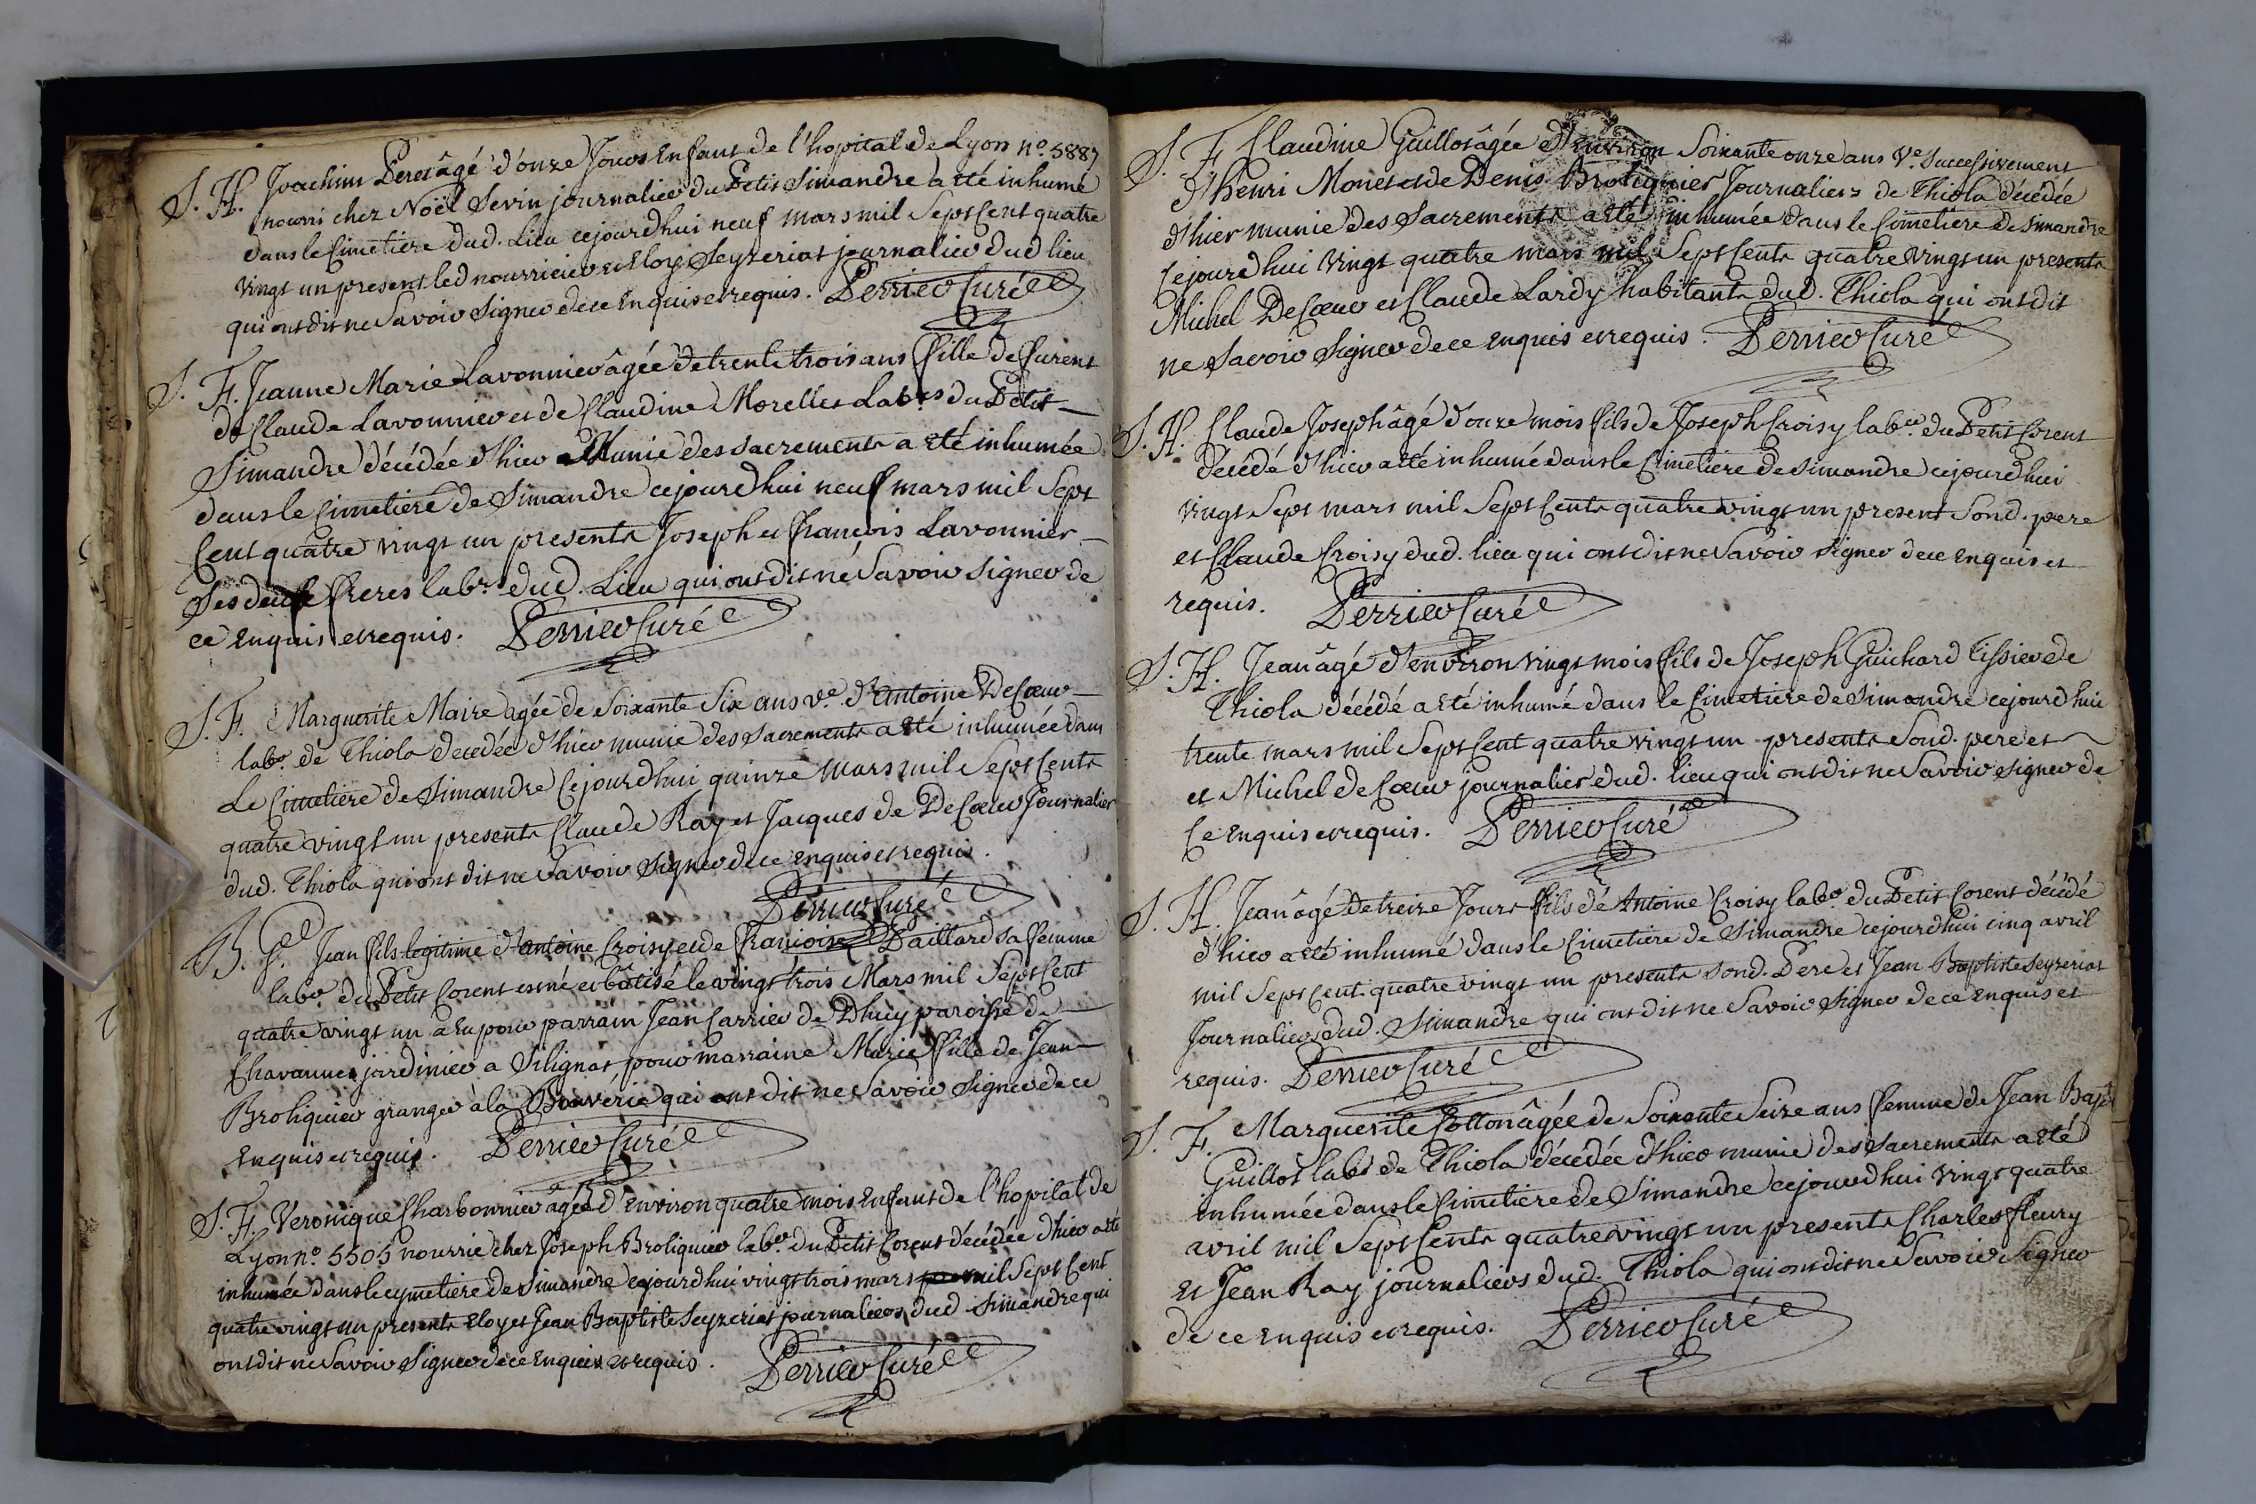 S. H. Joachim Peret âgé d'onze Jours Enfant de l'hopital de Lyon n.o 5887
nourri chez Noël Sevin journalier du Petit Simandre a été inhumé
dans le Cimetiere dud. Lieu cejourdhui neuf mars mil Sept Cent quatre
vingt un present led nourricier et Eloy Seyzeriat journalier dud lieu
qui ont dit ne Savoir Signer de ce Enquis et requis. Perrier Curé
S. F. Jeanne Marie Lavonnier âgée de trente trois ans fille de furent
de Claude Lavonnier et de Claudine Morellet Lab.rs du Petit
Simandre décédée d'hier Munie des sacrements a eté inhumée
dans le Cimetiere de Simandre cejourdhui neuf mars mil Sept
Cent quatre vingt un presents Joseph et François Lavonnier
Ses deux freres lab.rs dud. Lieu qui ont dit ne Savoir Signer de
ce Enquis et requis. Perrier Curé
S. F. Marguerite Maire agée de Soixante Six ans v.e d'Antoine DeCœur
lab.r de Thiola decedée d'hier munie des Sacrements a eté inhumée dans
Le Cimetiere de Simandre Cejourdhui quinze mars mil Sept Cents
quatre vingt un presents Claude Ray et Jacques de DeCœur Journalier
dud. Thiola qui ont dit ne Savoir Signer de ce enquis et requis.
Perrier Curé
B. G. Jean fils legitime d'Antoine Croisy et de françoise Paillard sa femme
lab.r du Petit Corent est né et bâtisé le vingt trois Mars mil Sept Cent
quatre vingt un a Eu pour parrain Jean Carrier de Dhuy paroisse de
Chavannes jardinier a Silignat pour marraine Marie fille de Jean
Broliquier granger à la Bouvérie qui ont dit ne Savoir Signer de ce
Enquis et requis. Perrier Curé
S. F. Veronique Charbonnier agée d'Environ quatre mois Enfant de l'hopital de
Lyon n.o 5505 nourrie chez Joseph Broliquier lab.r du Petit Corent décédée d'hier a eté
inhumée dans le cymetiere de Simandre cejourdhui vingt trois mars mil Sept Cent
quatre vingt un presents Eloy et Jean Baptiste Seyzeriat journaliers dud Simandre qui
ont dit ne Savoir Signer de ce Enquis et requis. Perrier Curé
S. F Claudine Guillot âgée d'Environ Soixante onze ans V.e Successivement
d'henri Monet et de Denis Broliquier Journaliers de Thiola décédée
d'hier munie des Sacrements a eté inhumée dans le Cimetiere de Simandre
Cejourdhui Vingt quatre mars mil Sept Cents quatre vingt un presents
Michel DeCœur et Claude Lardy habitants dud. Thiola qui ont dit
ne Savoir Signer de ce enquis et requis. Perrier Curé
S. H. Claude Joseph âgé d'onze mois fils de Joseph Croisy lab.r du Petit Corent
décédé d'hier a eté inhumé dans le Cimetiere de Simandre cejourdhui
vingt Sept mars mil Sept Cents quatre vingt un present Sond. pere
et Claude Croisy dud. lieu qui ont dit ne Savoir Signer de ce Enquis et
requis. Perrier Curé
S. H. Jean âgé d'environ vingt mois fils de Joseph Guichard Tissier de
Thiola décédé a eté inhumé dans le Cimetiere de Simandre cejourdhui
trente mars mil Sept Cent quatre vingt un presents Sond. pere et
et Michel de Cœur journalier dud. lieu qui ont dit ne Savoir Signer de
Ce enquis et requis. Perrier Curé
S. H. Jean âgé de treize Jours fils de Antoine Croisy lab.r du Petit Corent décédé
d'hier a eté inhumé dans le Cimetiere de Simandre cejourdhui cinq avril
mil Sept Cent quatre vingt un presents Sond. Pere et Jean Baptiste Seyzeriat
Journalier dud. Simandre qui ont dit ne Savoir Signer de ce Enquis et
requis. Perrier Curé
S. F. Marguerite Cotton âgée de Soixante Seize ans femme de Jean Bapt.
Guillot lab.r de Thiola décédée d'hier munie des Sacrements a eté
inhumée dans le Cimetiere de Simandre cejourdhui vingt quatre
avril mil Sept Cents quatre vingt un presents Charles fleury
Et Jean Ray journaliers dud. Thiola qui ont dit ne Savoir Signer
de ce enquis et requis. Perrier Curé